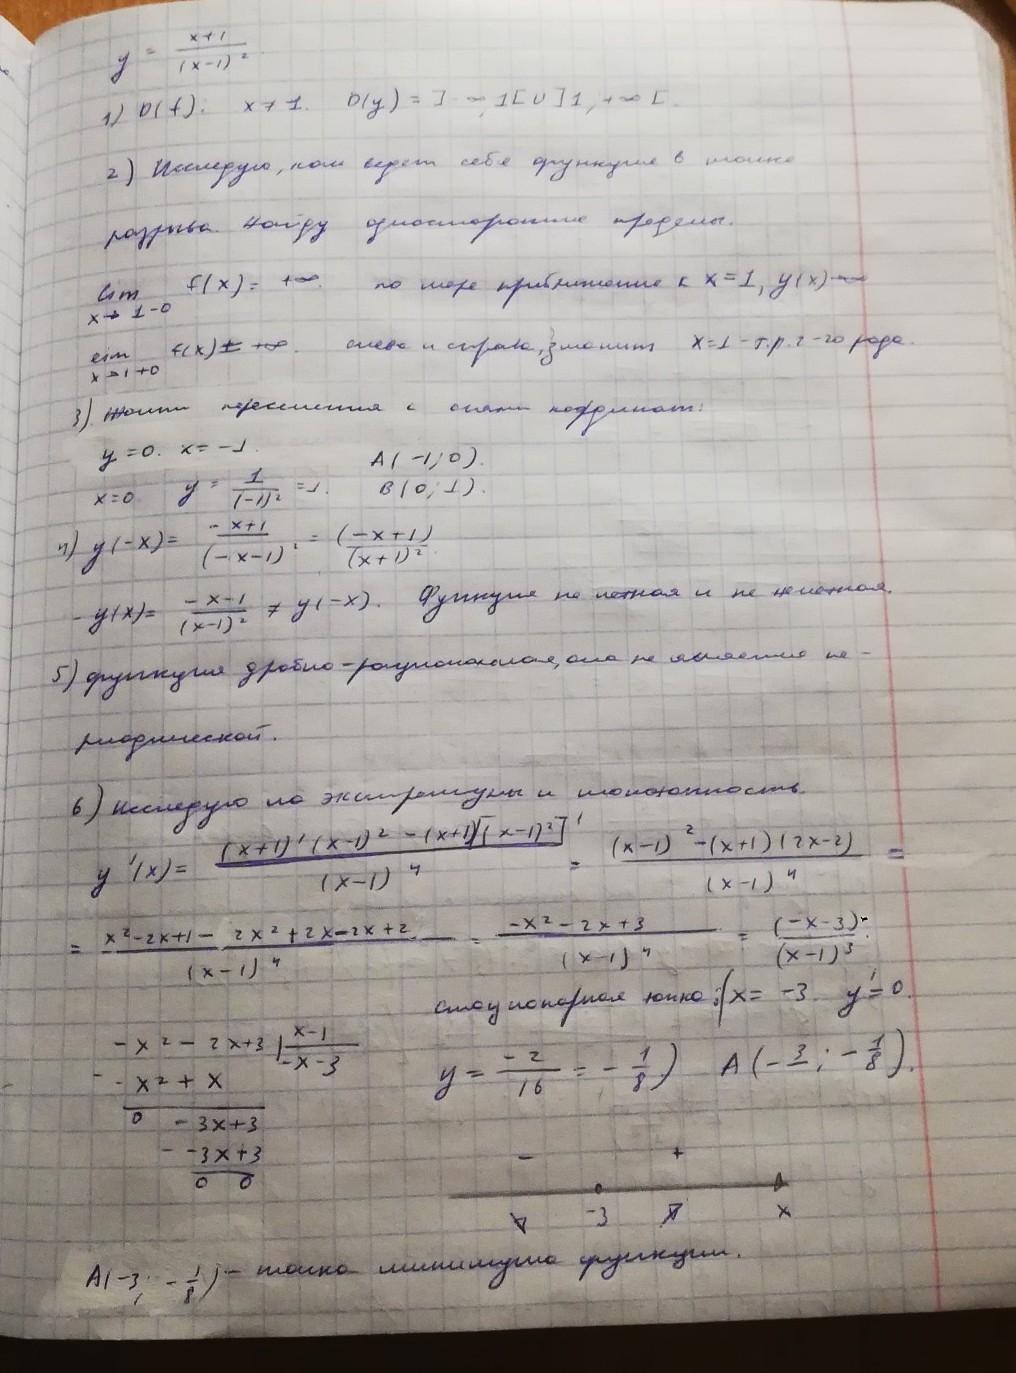 y = \frac{x+1}{(x-1)^2}
1) D(f): x ≠ 1. D(y) = ]-∞, 1[ U ]1, +∞[.
2) Исследую, как ведет себя функция в точке
разрыва. Найду односторонние пределы.
lim_{x→1-0} f(x) = +∞. по мере приближение к x=1, y(x)→∞
lim_{x→1+0} f(x) = +∞. слева и справа, значит x=1 - т.р. 2-го рода.
3) пересечения с осями координат:
y=0. x=-1. A(-1; 0).
x=0 y = \frac{1}{(-1)^2} = 1. B(0; 1).
4) y(-x) = \frac{-x+1}{(-x-1)^2} = \frac{(-x+1)}{(x+1)^2}
-y(x) = \frac{-x-1}{(x-1)^2} ≠ y(-x). Функция не четная и не нечетная.
5) функция дробно-рациональная, она не является пе-
риодической.
6) Исследую на экстремумы и монотонность.
y'(x) = \frac{(x+1)'(x-1)^2 - (x+1)[(x-1)^2]'}{(x-1)^4} = \frac{(x-1)^2 - (x+1)(2x-2)}{(x-1)^4} =
= \frac{x^2-2x+1 - 2x^2+2x-2x+2}{(x-1)^4} = \frac{-x^2-2x+3}{(x-1)^4} = \frac{(-x-3)}{(x-1)^3}.
стационарная точка: (x = -3 y' = 0.
-x^2 - 2x+3 | x-1
-x^2 + x | -x-3
0 -3x+3
-3x+3
0 0
y = \frac{-2}{16} = -\frac{1}{8}) A(-3; -\frac{1}{8}).
- +
-3 x
A(-3; -\frac{1}{8}) - точка минимума функции.